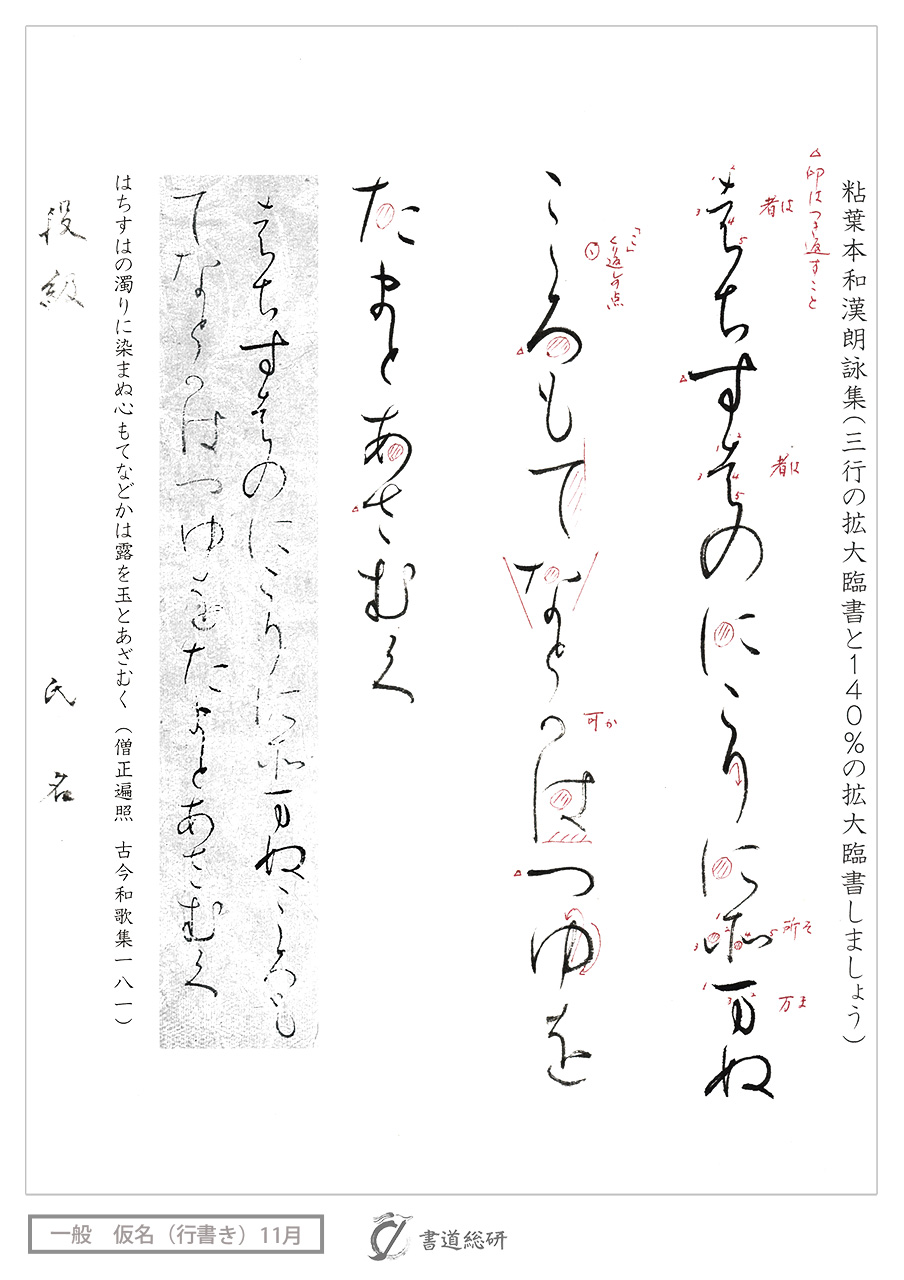 粘葉本和漢朗詠集(三行の拡大臨書と140%の拡大臨書しましょう)
△印はつき返すこと
者ちす者のにこりに所万ぬ
者は
者は
所そ
万ま
こゝろもてなと可はつゆを
「こ」くり返しの点
可か
たまとあさむく
者ちす者のにこりに所万ぬこゝろも
てなと可はつゆをたまとあさむく
はちすはの濁りに染まぬ心もてなどかは露を玉とあざむく (僧正遍照 古今和歌集一八一)
段級 氏名
一般 仮名(行書き)11月
書道総研